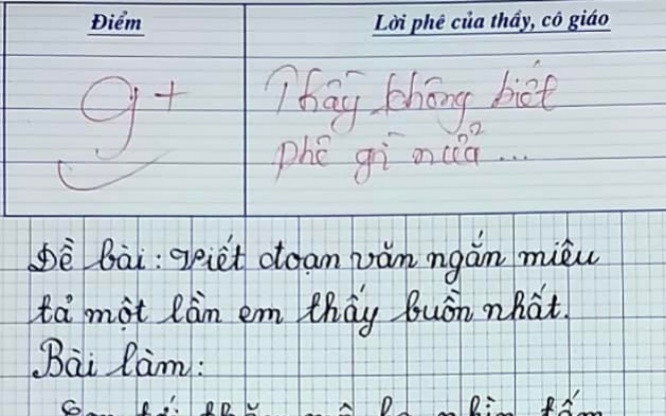 Điểm
Lời phê của thầy, cô giáo
9+
Thầy không biết
phê gì nữa...
Đề bài: Viết đoạn văn ngắn miêu
tả một lần em thấy buồn nhất.
Bài làm: